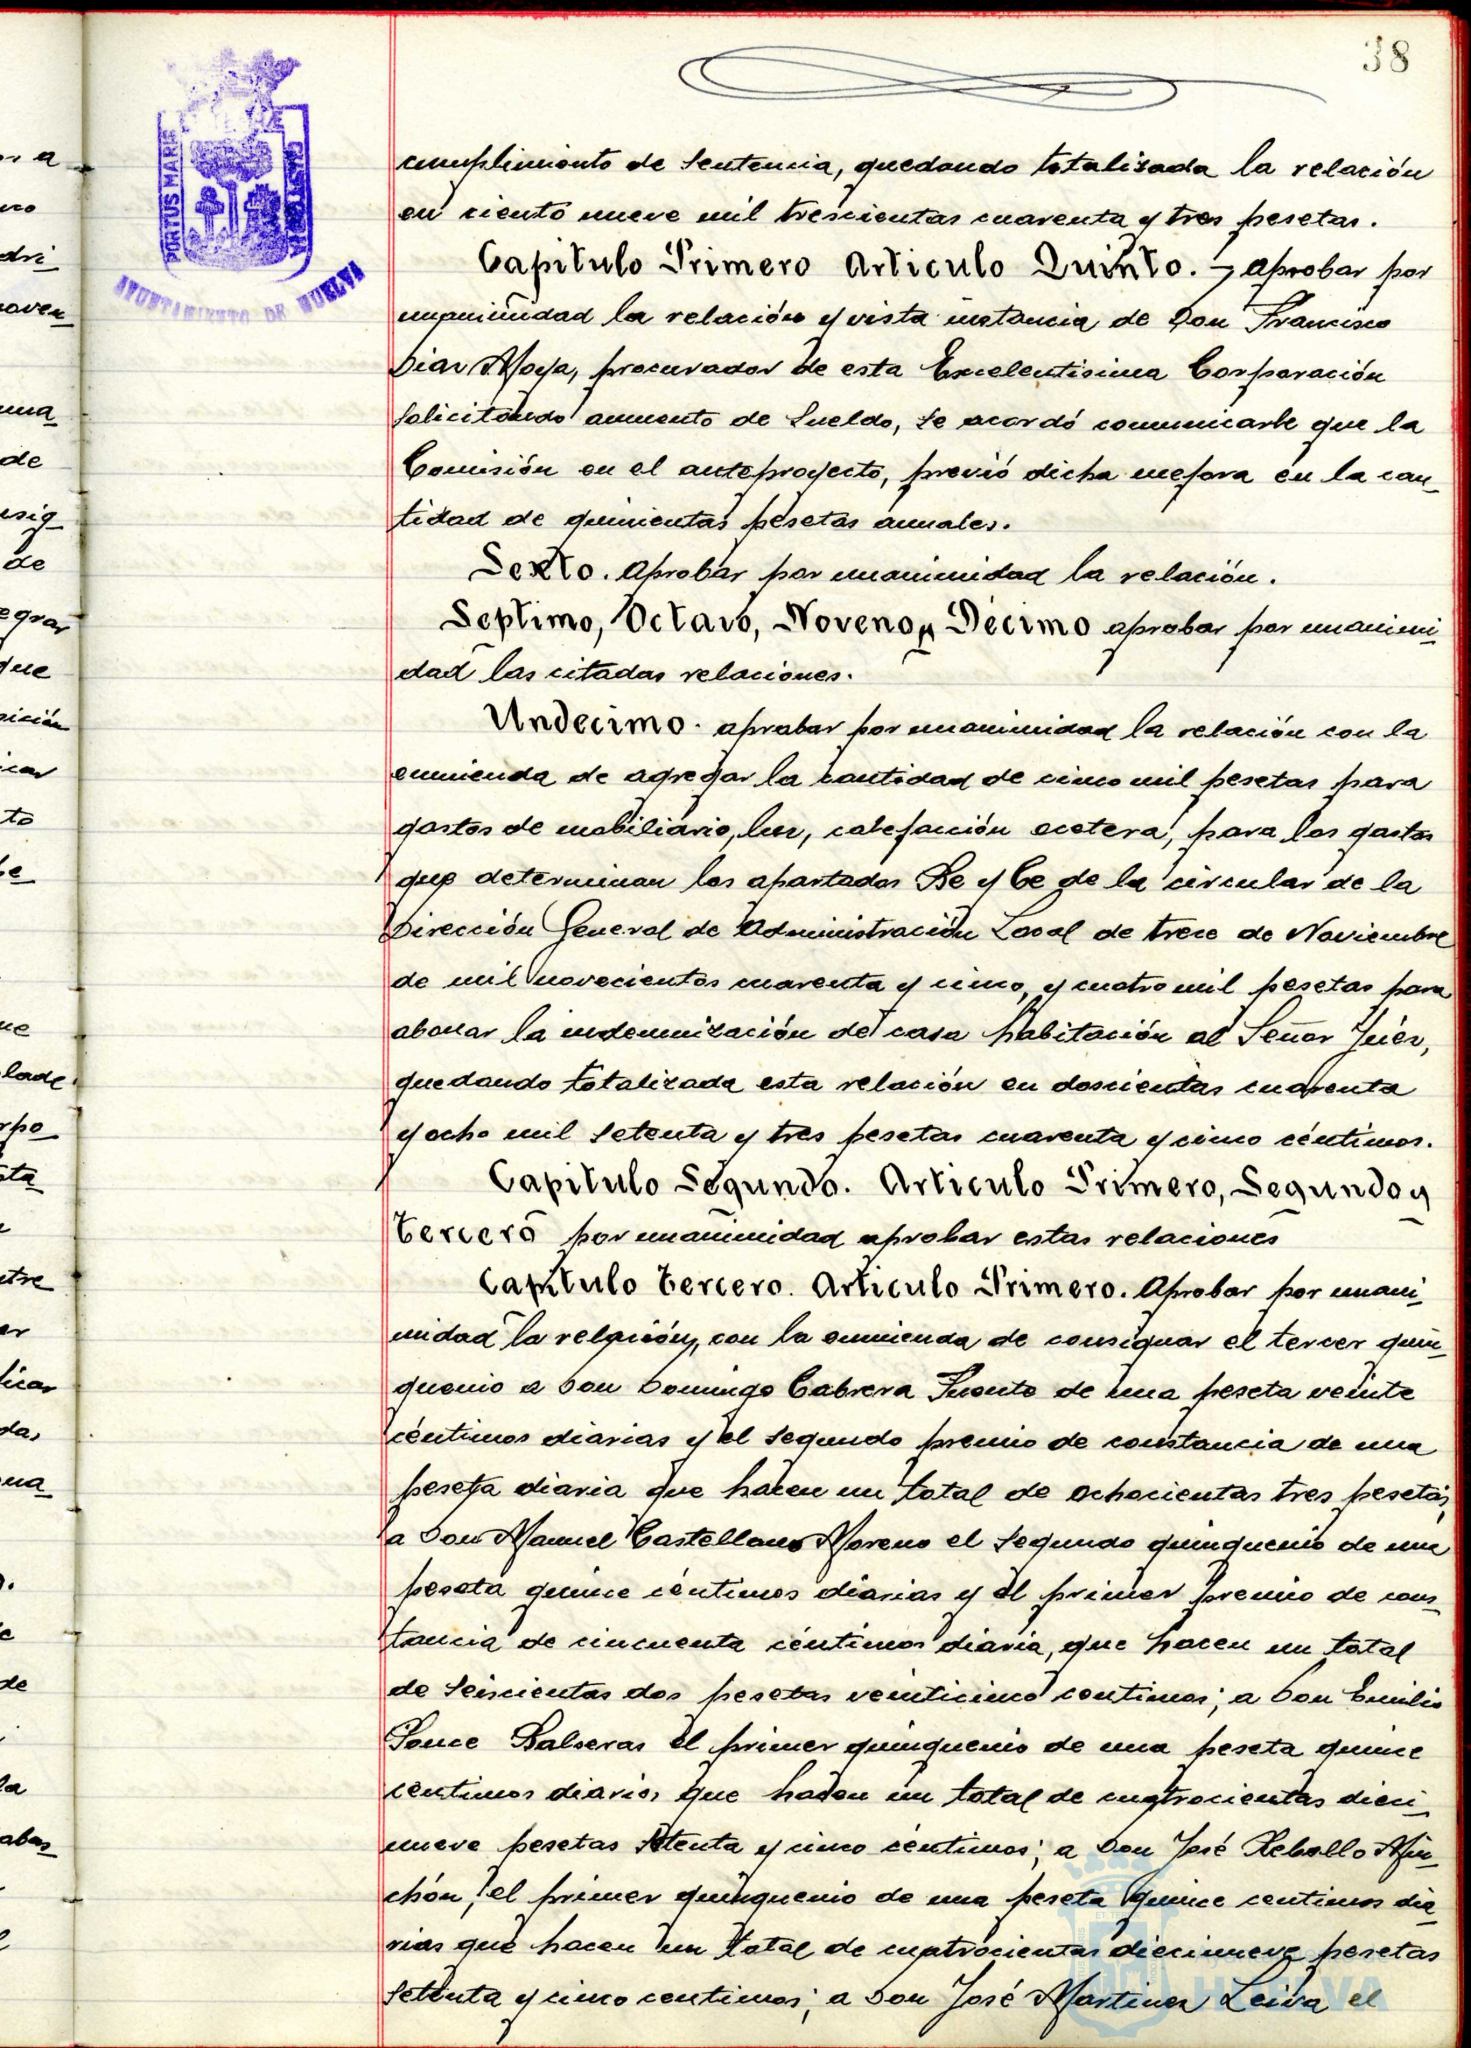 38
PORTUS MARIS
CUSTODIA
AYUNTAMIENTO DE HUELVA
cumplimiento de sentencia, quedando totalizada la relación
en ciento nueve mil trescientas cuarenta y tres pesetas.
Capitulo Primero Articulo Quinto. – Aprobar por
unanimidad la relación y vista instancia de Don Francisco
Diaz Moya, procurador de esta Excelentisima Corporación
solicitando aumento de sueldo, se acordó comunicarle que la
Comisión en el anteproyecto, previó dicha mejora en la can-
tidad de quinientas pesetas anuales.
Sexto. Aprobar por unanimidad la relación.
Septimo, Octavo, Noveno y Décimo aprobar por unanimi-
dad las citadas relaciones.
Undecimo. aprobar por unanimidad la relación con la
enmienda de agregar la cantidad de cinco mil pesetas para
gastos de mobiliario, luz, calefacción ecetera, para los gastos
que determinan los apartados Be y Ce de la circular de la
Dirección General de Administración Local de trece de Noviembre
de mil novecientos cuarenta y cinco, y cuatro mil pesetas para
abonar la indemnización de casa habitación al Señor Juéz,
quedando totalizada esta relación en doscientas cuarenta
y ocho mil setenta y tres pesetas cuarenta y cinco céntimos.
Capitulo Segundo. Articulo Primero, Segundo y
tercero por unanimidad aprobar estas relaciones
Capitulo tercero. Articulo Primero. Aprobar por unani-
midad la relación, con la enmienda de consignar el tercer quin-
quenio a Don Domingo Cabrera Puente de una peseta veinte
céntimos diarias y el segundo premio de constancia de una
peseta diaria que hacen un total de ochocientas tres pesetas,
a Don Manuel Castellano Moreno el segundo quinquenio de una
peseta quince céntimos diarias y el primer premio de cons-
tancia de cincuenta céntimos diaria, que hacen un total
de seiscientas dos pesetas veinticinco centimos; a Don Emilio
Ponce Balseras el primer quinquenio de una peseta quince
centimos diarios que hacen un total de cuatrocientas dieci-
nueve pesetas setenta y cinco céntimos; a Don José Rebollo Min-
chón, el primer quinquenio de una peseta quince centimos dia-
rias que hacen un total de cuatrocientas diecinueve pesetas
setenta y cinco centimos; a Don José Martinez Leiva el
HUELVA